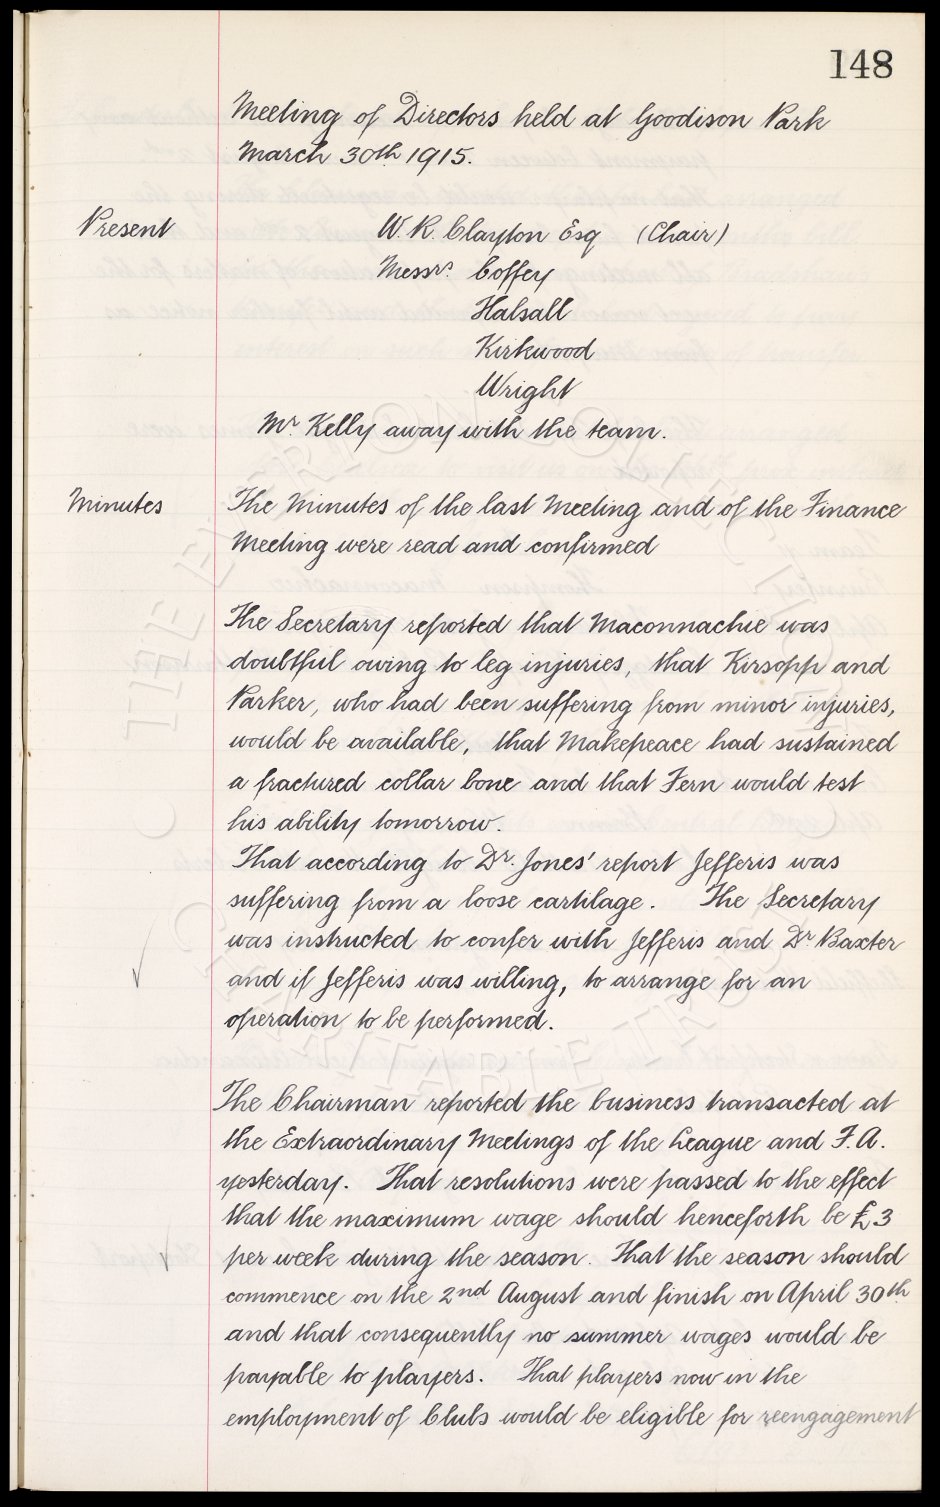 148
Meeting of Directors held at Goodison Park
March 30th 1915.
Present W. R. Clayton Esq (Chair)
Messrs. Coffey
Halsall
Kirkwood
Wright
Mr. Kelly away with the team.
Minutes The Minutes of the last Meeting and of the Finance
Meeting were read and confirmed
The Secretary reported that Maconnachie was
doubtful owing to leg injuries, that Kirsopp and
Parker, who had been suffering from minor injuries,
would be available, that Makepeace had sustained
a fractured collar bone and that Fern would test
his ability tomorrow.
That according to Dr. Jones' report Jefferis was
suffering from a loose cartilage. The Secretary
was instructed to confer with Jefferis and Dr Baxter
and if Jefferis was willing, to arrange for an
operation to be performed.
The Chairman reported the business transacted at
the Extraordinary Meetings of the League and F.A.
yesterday. That resolutions were passed to the effect
that the maximum wage should henceforth be £3
per week during the season. That the season should
commence on the 2nd August and finish on April 30th
and that consequently no summer wages would be
payable to players. That players now in the
employment of Clubs would be eligible for reengagement
THE EVERTON COLLECTION
CHARITABLE TRUST